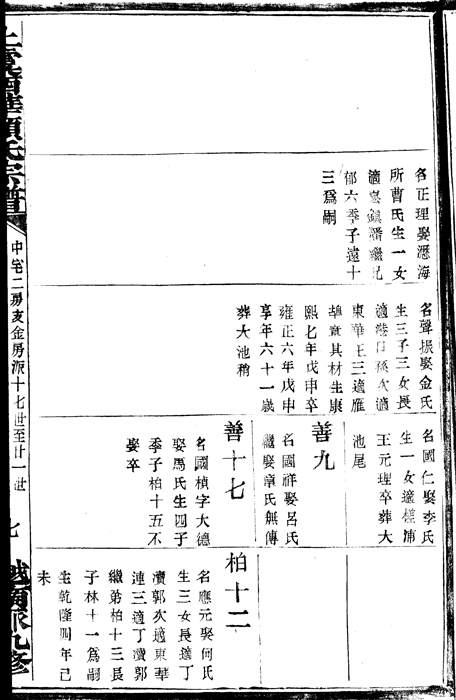 名正理娶瀝海
所曹氏生一女
適嵩鎮潘繼兄
郁六季子遠十
三爲嗣
名聲振娶金氏
生三子三女長
適港口孫次適
東華王三適雁
埠章其材生康
熙七年戊申卒
雍正六年戊申
享年六十一歲
葬大池稍
名國仁娶李氏
生一女適樣浦
王元理卒葬大
池尾
善九
名國祥娶呂氏
繼娶章氏無傳
善十七
名國楨字大德
娶馬氏生四子
季子柏十五不
娶卒
柏十二
名應元娶何氏
生三女長適丁
瀆郭次適東華
連三適丁瀆郭
繼弟柏十三長
子林十一爲嗣
生乾隆四年己
未
中宅二房支金房派十七世至廿一世
七